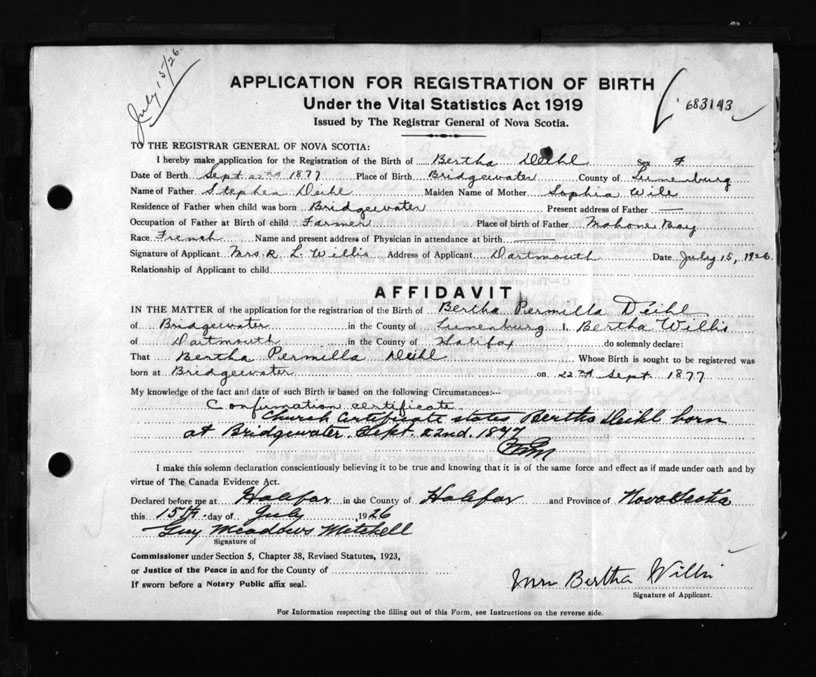 July 15/26
683143
APPLICATION FOR REGISTRATION OF BIRTH
Under the Vital Statistics Act 1919
Issued by The Registrar General of Nova Scotia.
TO THE REGISTRAR GENERAL OF NOVA SCOTIA:
I hereby make application for the Registration of the Birth of Bertha Deihl Sex F
Date of Birth Sept 22nd 1877 Place of Birth Bridgewater County of Lunenburg
Name of Father Stephen Deihl Maiden Name of Mother Sophia Wile
Residence of Father when child was born Bridgewater Present address of Father —
Occupation of Father at Birth of child Farmer Place of birth of Father Mahone Bay
Race French Name and present address of Physician in attendance at birth —
Signature of Applicant Mrs. R. L. Willis Address of Applicant Dartmouth Date July 15, 1926
Relationship of Applicant to child
AFFIDAVIT
IN THE MATTER of the application for the registration of the Birth of Bertha Permilla Deihl
of Bridgewater in the County of Lunenburg I, Bertha Willis
of Dartmouth in the County of Halifax do solemnly declare:
That Bertha Permilla Deihl Whose Birth is sought to be registered was
born at Bridgewater on 22nd Sept 1877
My knowledge of the fact and date of such Birth is based on the following Circumstances:—
Confirmation certificate
Church Certificate states Bertha Deihl born
at Bridgewater Sept. 22nd. 1877
I make this solemn declaration conscientiously believing it to be true and knowing that it is of the same force and effect as if made under oath and by
virtue of The Canada Evidence Act.
Declared before me at Halifax in the County of Halifax and Province of Nova Scotia
this 15th day of July 1926
Guy Meadows Mitchell
Signature of
Commissioner under Section 5, Chapter 38, Revised Statutes, 1923,
or Justice of the Peace in and for the County of
If sworn before a Notary Public affix seal.
Mrs Bertha Willis
Signature of Applicant.
For Information respecting the filling out of this Form, see Instructions on the reverse side.